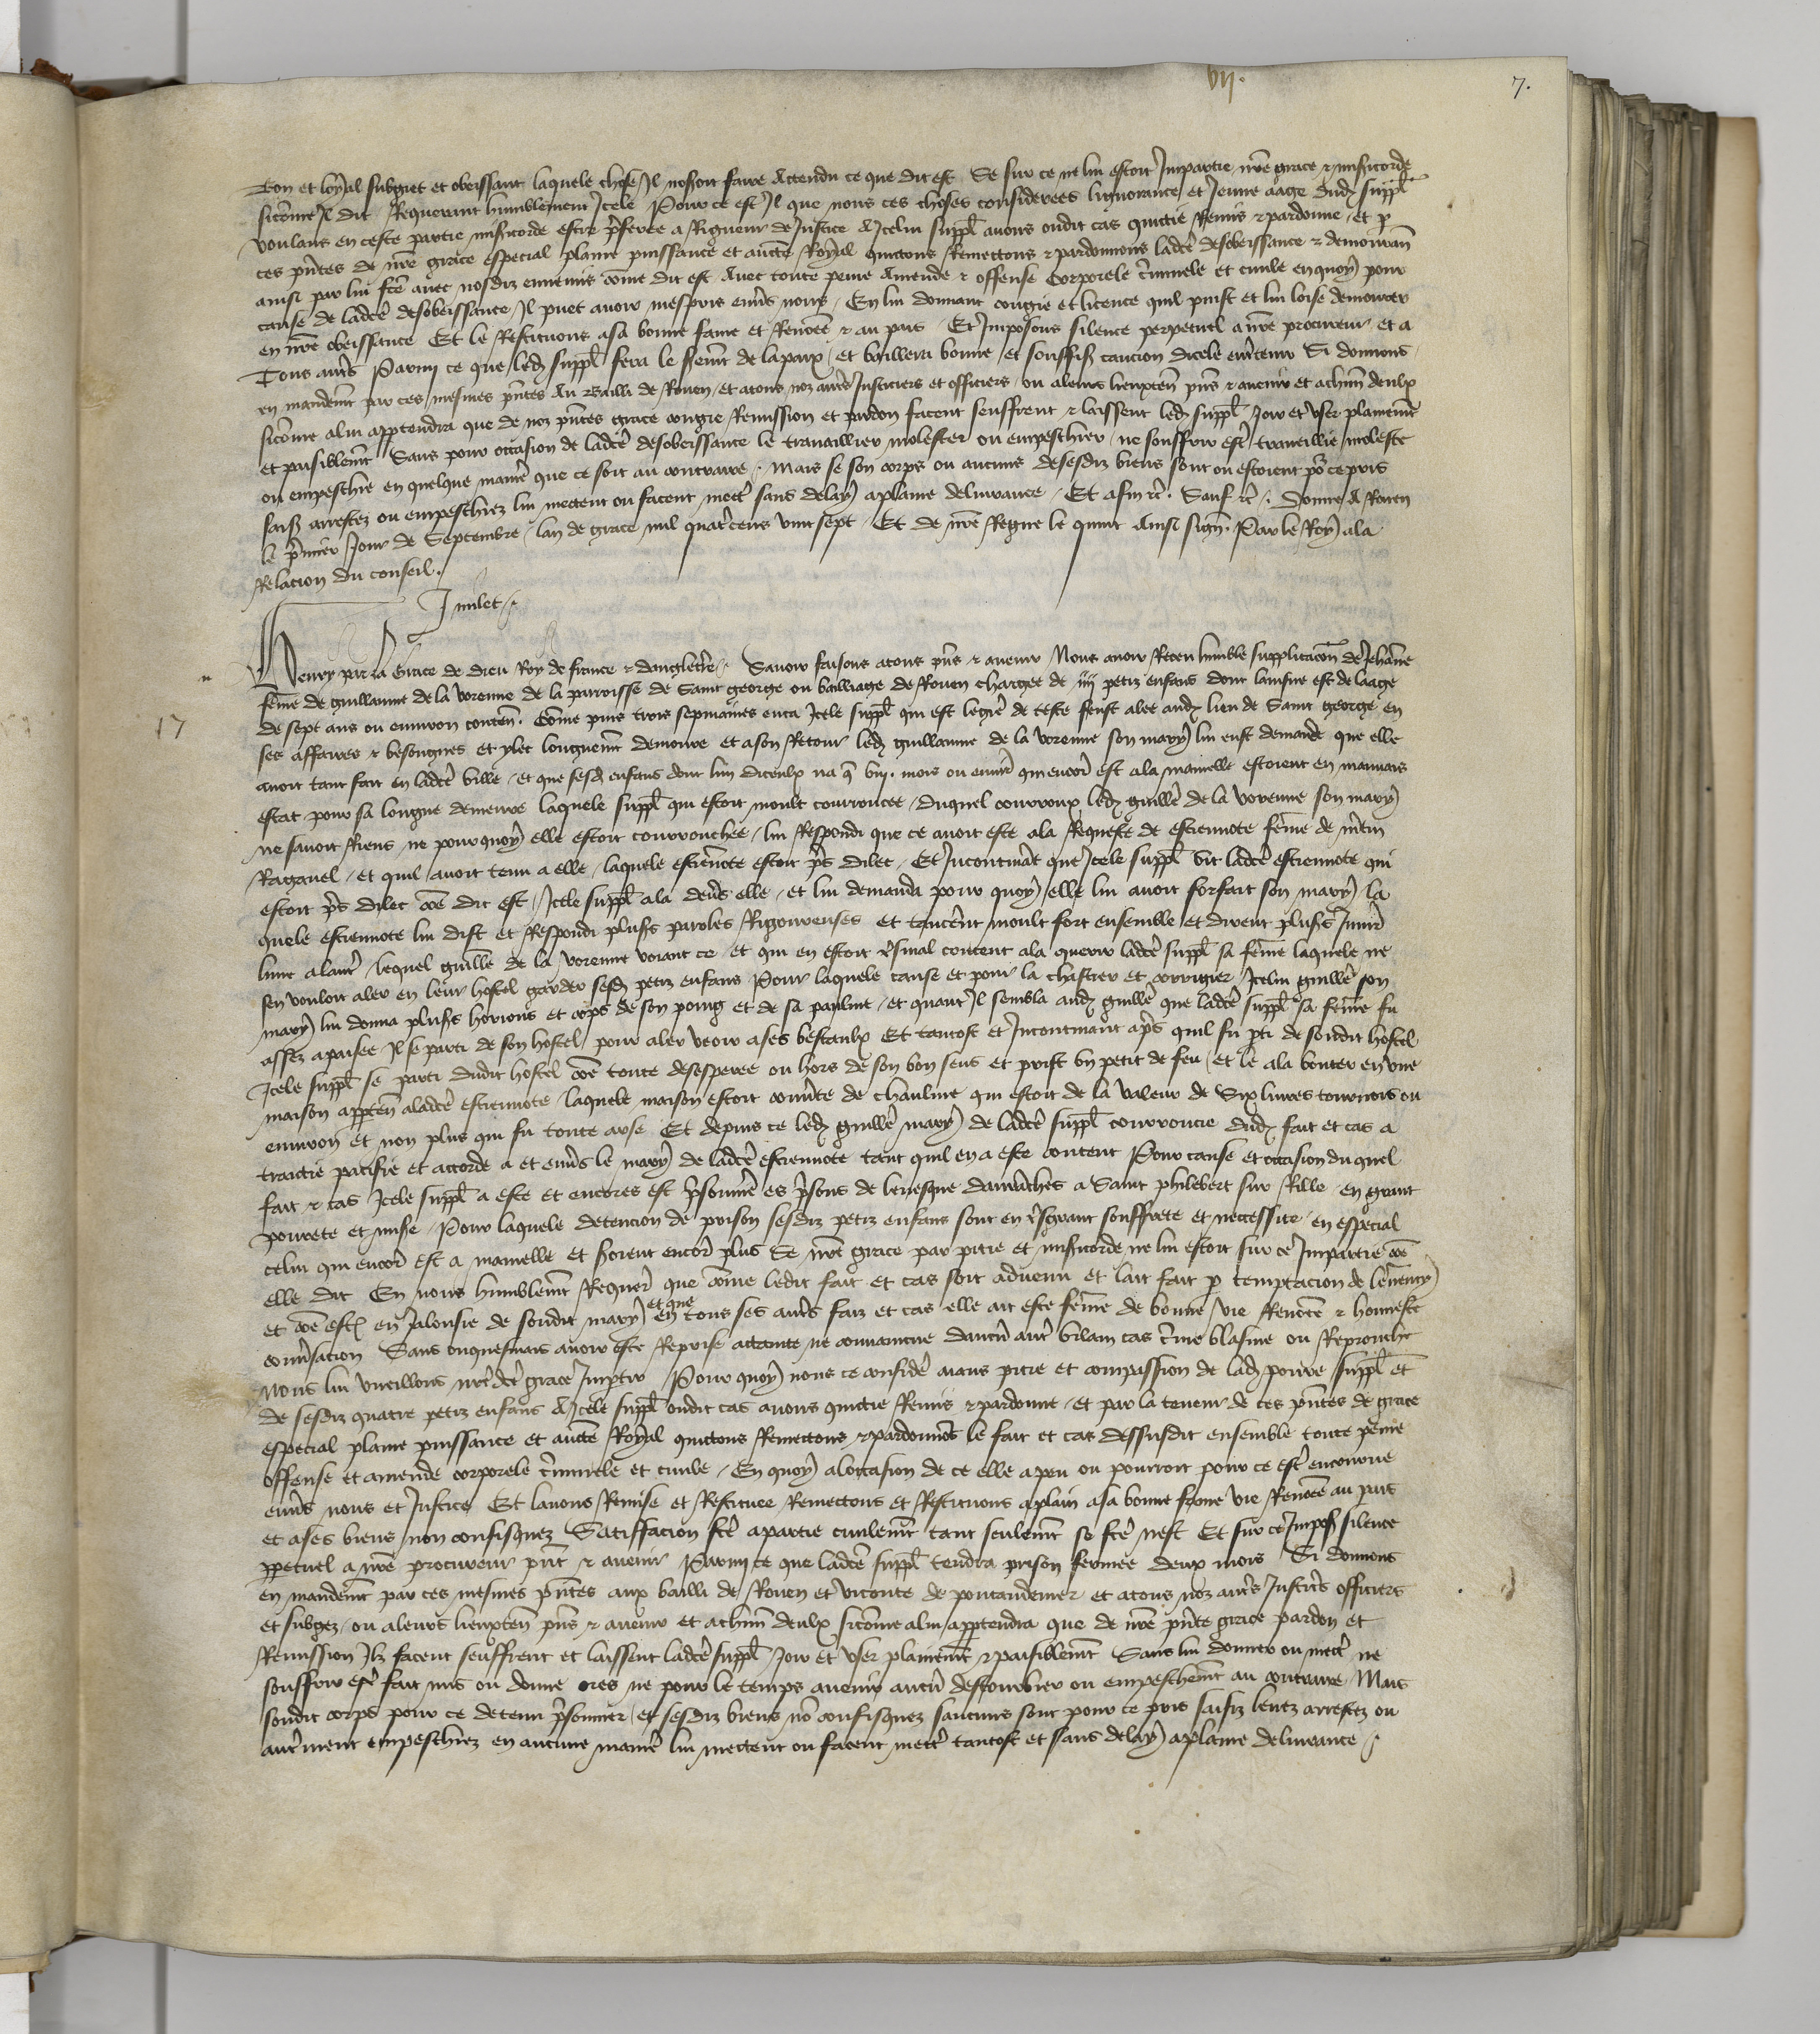 vij.
7.
bon et loyal subgiet et obeissant laquele chose Il noseroit faire Attendu ce que dit est Se sur ce ne lui estoit Impartie nre grace & misericorde
sicome Il dit Requerant humblement Icele Pour ce est Il que nous ces choses considerees lignorance et Jeune aage dudz suppl
voulans en ceste partie misericorde estre preferee a Rigueur de Justice A Icelui suppl avons oudit cas quictie Remis & pardonne et p
ces pntes de nre grace especial plaine puissance et aucte Royal quictons Remectons & pardonnons ladce desobeissance & demouran
ainsi par lui fce avec nosdiz ennemis come dit est Avec toute peine Amende & offense Corporele criminele et civile en quoy pour
cause de ladce desobeissance Il puet avoir mespris envs nous En lui donnant congie et licence quil puist et lui loise demourer
en nre obeissance Et le Restituons a sa bonne fame et Renomee & au pais Et Imposons silence perpetuel a nre procureur et a
Tous autrs Parmy ce que ledz suppl fera le seremt de la paix et baillera bonne et souffisant caucion dicele entretenir Si donnons
en mandemt par ces mesmes pntes Au Bailli de Rouen et a tous noz autrs Justiciers et officiers ou a leurs lieuxten pns & avenir et a chun deulx
sicome a lui appartendra que de noz pntes grace congie Remission et pardon facent seuffrent & laissent ledz suppl Joir et user plainemt
et paisiblemt Sans pour occasion de ladce desobeissance le travaillier molester ou empeschier ne souffrir estre traveillie moleste
ou empeschie en quelque maniere que ce soit au contraire Mais se son corps ou aucuns de sesdiz biens sont ou estoient pour ce pris
saisiz arrestez ou empeschiez lui mectent ou facent mectre sans delay a plaine delivrance Et afin &c. Sauf &c. Donne A Rouen
le premier Jour de Septembre lan de grace mil quatrecens vint sept Et de nre Regne le quint Ainsi sign. Par le Roy a la
Relacion du conseil.
Milet
Henry par la Grace de dieu Roy de france & dangletre. Savoir faisons a tous pns & avenir Nous avoir Receu humble supplicacion de Jehanne
feme de guillaume de la Vorenne de la parroisse de Saint george ou bailliage de Rouen chargee de iiij petiz enfans dont lainsne est de laage
17
de sept ans ou environ conten. Come puis trois sepmaines enca Icele suppl qui est legiere de teste feust alee audz lieu de Saint george en
ses affaires & besongnes et ylec longuemt demoure et a son Retour ledz guillaume de la vorenne son mary lui eust demande que elle
avoit tant fait en ladce ville et que sesdz enfans dont lun diceulx na que viij. mois ou envir qui encore est a la mamelle estoient en mauvais
estat pour sa longue demeure laquele suppl qui estoit moult courroucee duquel courroux ledz guille de la vorenne son mary
ne savoit Riens ne pour quoy elle estoit courrouchee lui Respondi que ce avoit este a la Requeste de estiennote feme de mtin
Raganel et quil avoit tenu a elle laquele estienote estoit prs dilec Et Incontinat que Icele suppl vit ladce estiennote qui
estoit prs dilec come dit est Icele suppl ala devs elle et lui demanda pour quoy elle lui avoit forfait son mary la
quele estiennote lui dist et Respondi plusrs paroles Rigoureuses et tancerent moult fort ensemble et dirent plusrs Injures
lune a lautre lequel guille de la vorenne voiant ce et qui en estoit tresmal content ala querir ladce suppl sa feme laquele ne
sen vouloit aler en leur hostel garder sesdz petiz enfans Pour laquele cause et pour la chastier et corrigier Icelui guille son
mary lui donna plusrs horions et cops de son poing et de sa paulme et quant Il sembla audz guille que ladce suppl sa feme fu
assez apaisee Il se parti de son hostel pour aler veoir a ses bestaulx Et tantost et Incontinant aprs quil fu parti de sondit hostel
Icele suppl se parti dudit hostel come toute desesperee ou hors de son bon sens et prist un petit de feu et le ala bouter en une
maison apparten a ladce estiennote laquele maison estoit couverte de chaulme qui estoit de la valeur de Six livres tournois ou
environ et non plus qui fu toute arse Et depuis ce ledz guille mary de ladce suppl courroucie dudz fait et cas a
traictie pacifie et accorde a et envs le mary de ladce estiennote tant quil en a este content Pour cause et occasion du quel
fait & cas Icele suppl a este et encores est prisonniere es prisons de levesque davrenches a Saint philebert sur Rille en grant
povrete et misere Pour laquele detencion de prison sesdiz petiz enfans sont en tresgrant souffrete et neccessite en especial
celui qui encore est a mamelle et seroient encore plus Se nre grace par pitie et misericorde ne lui estoit sur ce Impartie come
elle dit En nous humblemt Requerant que come ledit fait et cas soit advenu et lait fait par temptacion de lennemy
et come estant en Jalousie de sondit mary et que en tous ses autrs faiz et cas elle ait este feme de bonne vie Renomee & honneste
conversacion Sans onquesmais avoir este Reprise attainte ne convaincue daucun autre vilain cas crime blasme ou Reprouche
Nous lui vueillons nredce grace Impartir Pour quoy nous ce considere aians pitie et compassion de ladz povre suppl et
de sesdiz quatre petiz enfans A Icele suppl oudit cas avons quictie Remis & pardonne et par la teneur de ces pntes de grace
especial plaine puissance et aucte Royal quictons Remectons & pardonnons le fait et cas dessusdit ensemble toute peine
offense et amende corporele criminele et civile En quoy a loccasion de ce elle a peu ou pourroit pour ce estre encourue
envs nous et Justice Et lavons Remise et Restituee Remectons et Restituons a plain a sa bonne fame vie Renomee au pais
et a ses biens non confisquez Satiffacion fce a partie civilemt tant seulemt se fce nest Et sur ce Imposons silence
ppetuel a nre procureur pnt & avenir Parmy ce que ladce suppl tendra prison fermee deux mois Si donnons
en mandemt par ces mesmes pntes aux bailli de Rouen et viconte de pontaudemer et a tous noz autrs Justiciers officiers
et subgez ou a leurs lieuxten pns & avenir et a chun deulx sicome a lui appartendra que de nre pnte grace pardon et
Remission Ilz facent seuffrent et laissent ladce suppl Joir et user plainemt & paisiblemt Sans lui donner ou mectre ne
souffrir estre fait mis ou donne ores ne pour le temps avenir aucun destourbier ou empeschemt au contraire Mais
sondit corps pour ce detenu prisonnier et sesdiz biens non confisquez saucuns sont pour ce pris saisiz levez arrestez ou
autrement empeschiez en aucune maniere lui mectent ou facent mectre tantost et sans delay a plaine delivrance